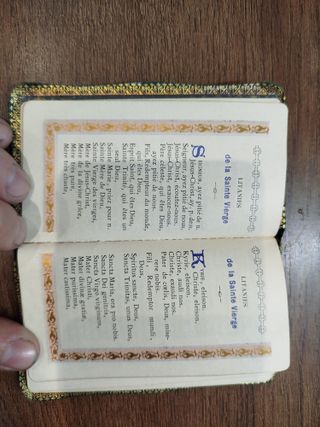 LITANIES
de la Sainte Vierge
Seigneur, ayez pitié de n.
Jésus-Christ, ay. p. de n.
Seigneur, ayez pitié de nous.
Jésus-Christ, écoutez-nous.
Jésus-Christ, exaucez-nous.
Père céleste, qui êtes Dieu,
ayez pitié de nous.
Fils, Rédempteur du monde,
qui êtes Dieu,
Esprit Saint, qui êtes Dieu,
Sainte Trinité, qui êtes un
seul Dieu,
Sainte Marie, priez pour n.
Sainte Mère de Dieu,
Sainte Vierge des vierges,
Mère de Jésus-Christ,
Mère de la divine grâce,
Mère très pure,
Mère très chaste,
LITANIES
de la Sainte Vierge
Kyrie, eleison.
Christe, eleison.
Kyrie, eleison.
Christe, audi nos.
Christe, exaudi nos.
Pater de cœlis, Deus, mise-
rere nobis.
Fili, Redemptor mundi,
Deus,
Spiritus sancte, Deus,
Sancta Trinitas, unus Deus,
Sancta Maria, ora pro nobis.
Sancta Dei genitrix,
Sancta Virgo virginum,
Mater Christi,
Mater divinæ gratiæ,
Mater purissima,
Mater castissima,